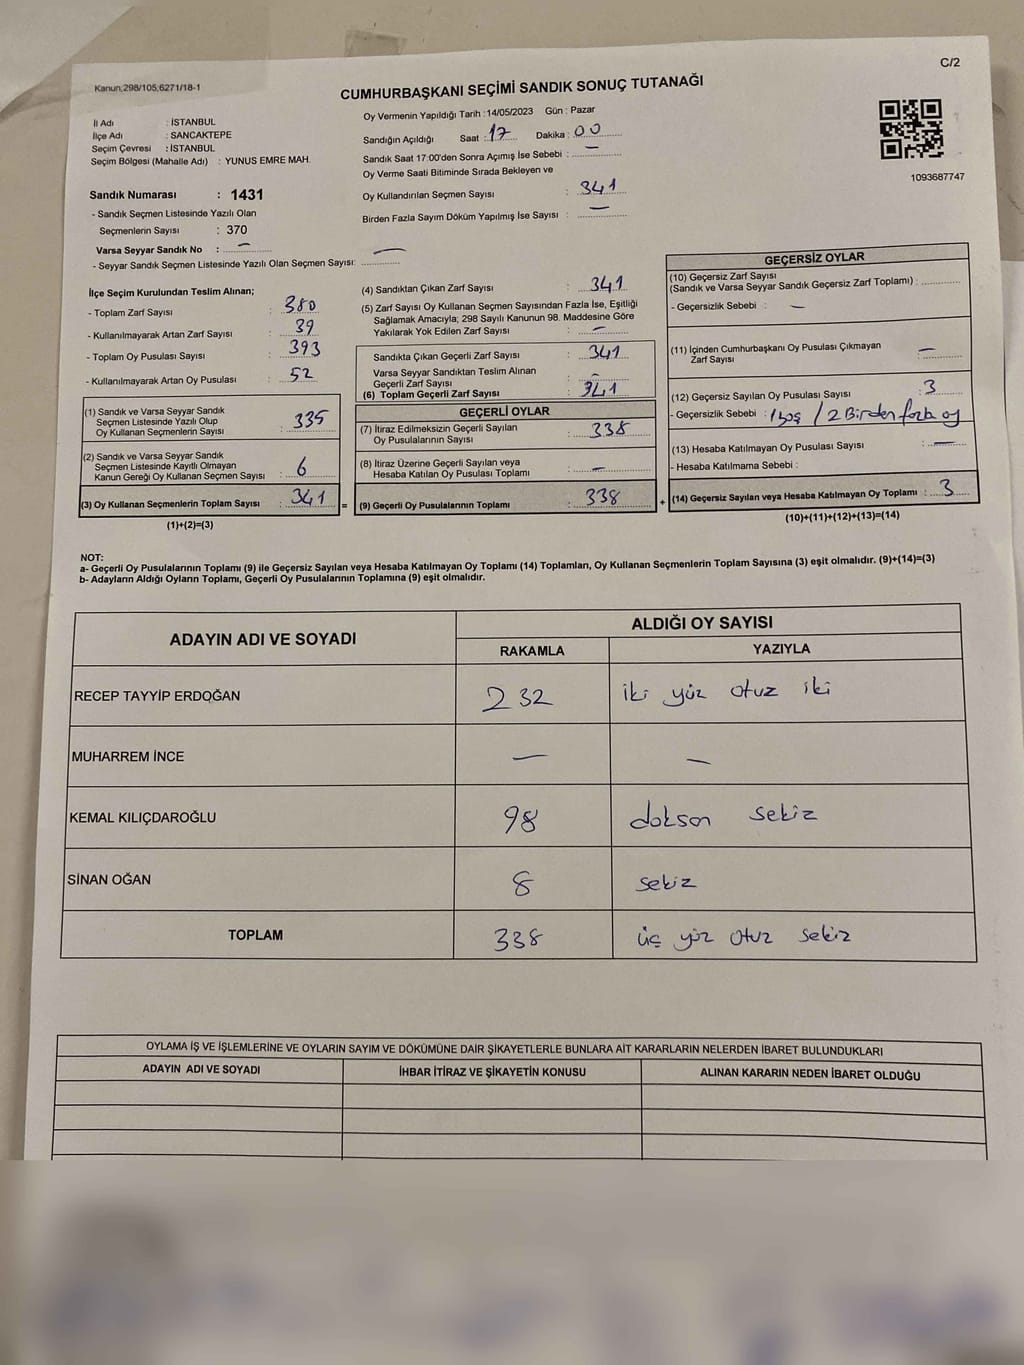 C/2
Kanun,298/105,6271/18-1
CUMHURBAŞKANI SEÇİMİ SANDIK SONUÇ TUTANAĞI
İl Adı : İSTANBUL
İlçe Adı : SANCAKTEPE
Seçim Çevresi : İSTANBUL
Seçim Bölgesi (Mahalle Adı) : YUNUS EMRE MAH.
Oy Vermenin Yapıldığı Tarih : 14/05/2023 Gün : Pazar
Sandığın Açıldığı Saat : 17 Dakika : 00
Sandık Saat 17:00'den Sonra Açımış İse Sebebi : —
Oy Verme Saati Bitiminde Sırada Bekleyen ve
Oy Kullandırılan Seçmen Sayısı : 341
Birden Fazla Sayım Döküm Yapılmış İse Sayısı : —
1093687747
Sandık Numarası : 1431
- Sandık Seçmen Listesinde Yazılı Olan
Seçmenlerin Sayısı : 370
Varsa Seyyar Sandık No : —
- Seyyar Sandık Seçmen Listesinde Yazılı Olan Seçmen Sayısı: —
İlçe Seçim Kurulundan Teslim Alınan;
- Toplam Zarf Sayısı : 380
- Kullanılmayarak Artan Zarf Sayısı : 39
- Toplam Oy Pusulası Sayısı : 393
- Kullanılmayarak Artan Oy Pusulası : 52
(1) Sandık ve Varsa Seyyar Sandık
Seçmen Listesinde Yazılı Olup
Oy Kullanan Seçmenlerin Sayısı : 335
(2) Sandık ve Varsa Seyyar Sandık
Seçmen Listesinde Kayıtlı Olmayan
Kanun Gereği Oy Kullanan Seçmen Sayısı : 6
(3) Oy Kullanan Seçmenlerin Toplam Sayısı : 341 =
(1)+(2)=(3)
(4) Sandıktan Çıkan Zarf Sayısı : 341
(5) Zarf Sayısı Oy Kullanan Seçmen Sayısından Fazla İse, Eşitliği
Sağlamak Amacıyla; 298 Sayılı Kanunun 98. Maddesine Göre
Yakılarak Yok Edilen Zarf Sayısı : —
Sandıkta Çıkan Geçerli Zarf Sayısı : 341
Varsa Seyyar Sandıktan Teslim Alınan
Geçerli Zarf Sayısı : —
(6) Toplam Geçerli Zarf Sayısı : 341
GEÇERLİ OYLAR
(7) İtiraz Edilmeksizin Geçerli Sayılan
Oy Pusulalarının Sayısı : 338
(8) İtiraz Üzerine Geçerli Sayılan veya
Hesaba Katılan Oy Pusulası Toplamı : —
(9) Geçerli Oy Pusulalarının Toplamı : 338 +
GEÇERSİZ OYLAR
(10) Geçersiz Zarf Sayısı
(Sandık ve Varsa Seyyar Sandık Geçersiz Zarf Toplamı) :
- Geçersizlik Sebebi : —
(11) İçinden Cumhurbaşkanı Oy Pusulası Çıkmayan
Zarf Sayısı : —
(12) Geçersiz Sayılan Oy Pusulası Sayısı : 3
- Geçersizlik Sebebi : 1 boş / 2 Birden fazla oy
(13) Hesaba Katılmayan Oy Pusulası Sayısı : —
- Hesaba Katılmama Sebebi :
(14) Geçersiz Sayılan veya Hesaba Katılmayan Oy Toplamı : 3
(10)+(11)+(12)+(13)=(14)
NOT:
a- Geçerli Oy Pusulalarının Toplamı (9) ile Geçersiz Sayılan veya Hesaba Katılmayan Oy Toplamı (14) Toplamları, Oy Kullanan Seçmenlerin Toplam Sayısına (3) eşit olmalıdır. (9)+(14)=(3)
b- Adayların Aldığı Oyların Toplamı, Geçerli Oy Pusulalarının Toplamına (9) eşit olmalıdır.
ADAYIN ADI VE SOYADI ALDIĞI OY SAYISI
RAKAMLA YAZIYLA
RECEP TAYYİP ERDOĞAN 232 iki yüz otuz iki
MUHARREM İNCE — —
KEMAL KILIÇDAROĞLU 98 doksan sekiz
SİNAN OĞAN 8 sekiz
TOPLAM 338 üç yüz otuz sekiz
OYLAMA İŞ VE İŞLEMLERİNE VE OYLARIN SAYIM VE DÖKÜMÜNE DAİR ŞİKAYETLERLE BUNLARA AİT KARARLARIN NELERDEN İBARET BULUNDUKLARI
ADAYIN ADI VE SOYADI İHBAR İTİRAZ VE ŞİKAYETİN KONUSU ALINAN KARARIN NEDEN İBARET OLDUĞU